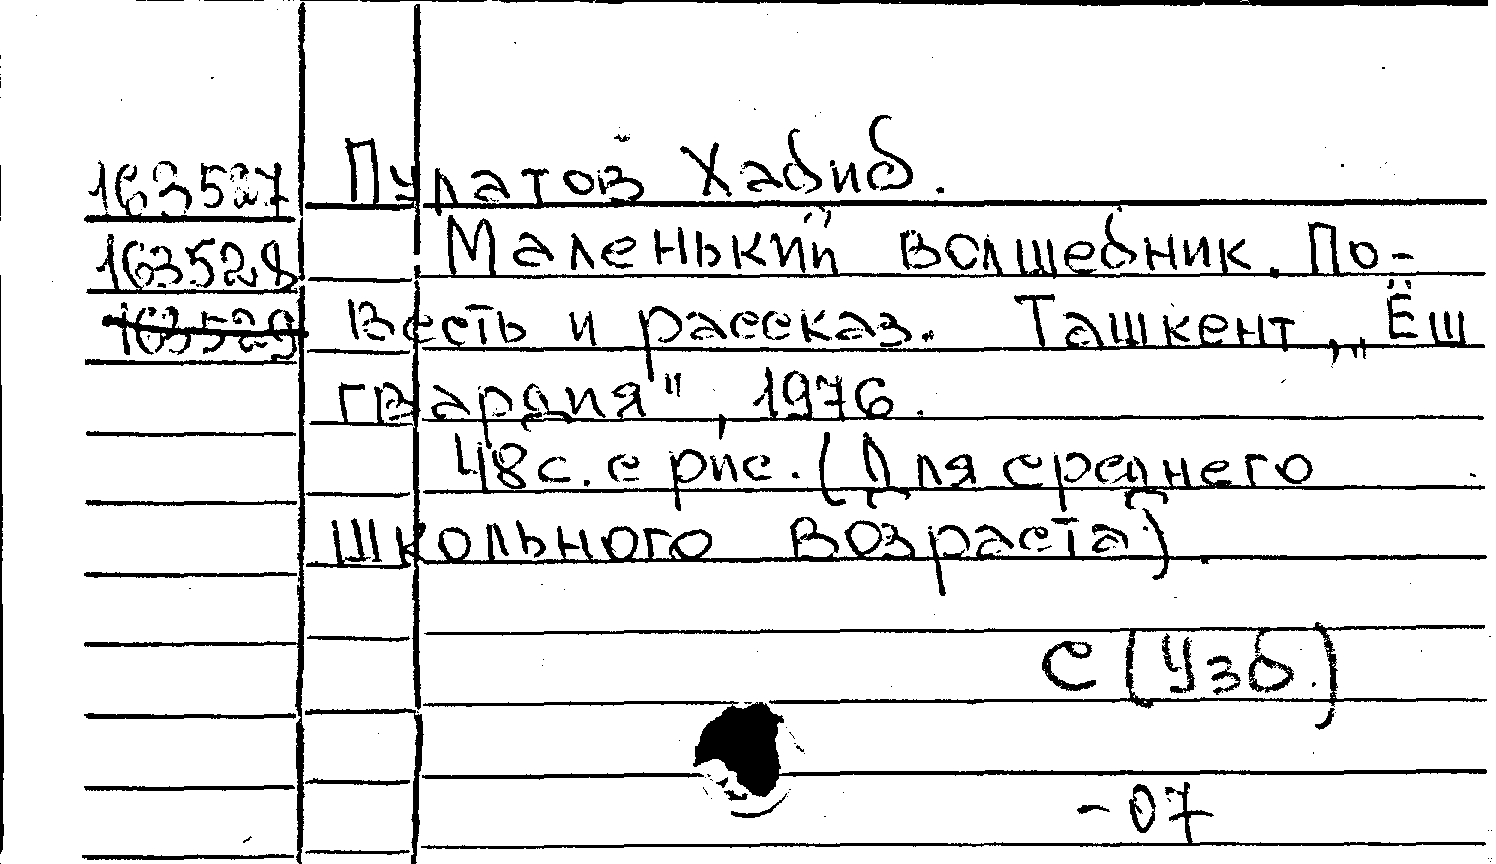 163527 Пулатов Хабиб.
163528 Маленький волшебник. По-
163529 весть и рассказ. Ташкент, „Ёш
гвардия", 1976.
48 с. с рис. (Для среднего
школьного возраста).
С (Узб.)
-07